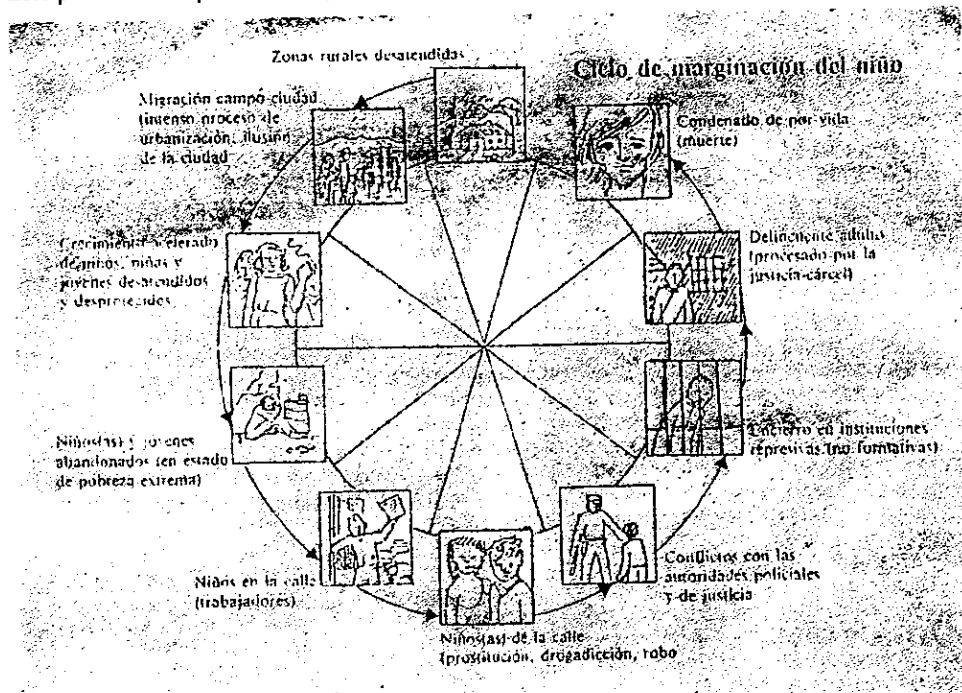 Ciclo de marginación del niño
Zonas rurales desatendidas
Migración campo-ciudad
(intenso proceso de
urbanización, ilusión
de la ciudad
Crecimiento acelerado
de niños, niñas y
jóvenes desatendidos
y desprotegidos
Niños(as) y jóvenes
abandonados (en estado
de pobreza extrema)
Niños en la calle
(trabajadores)
Niños(as) de la calle
(prostitución, drogadicción, robo
Conflictos con las
autoridades policiales
y de justicia
Encierro en instituciones
represivas (no formativas)
Delincuente adulto
(procesado por la
justicia-cárcel)
Condenado de por vida
(muerte)